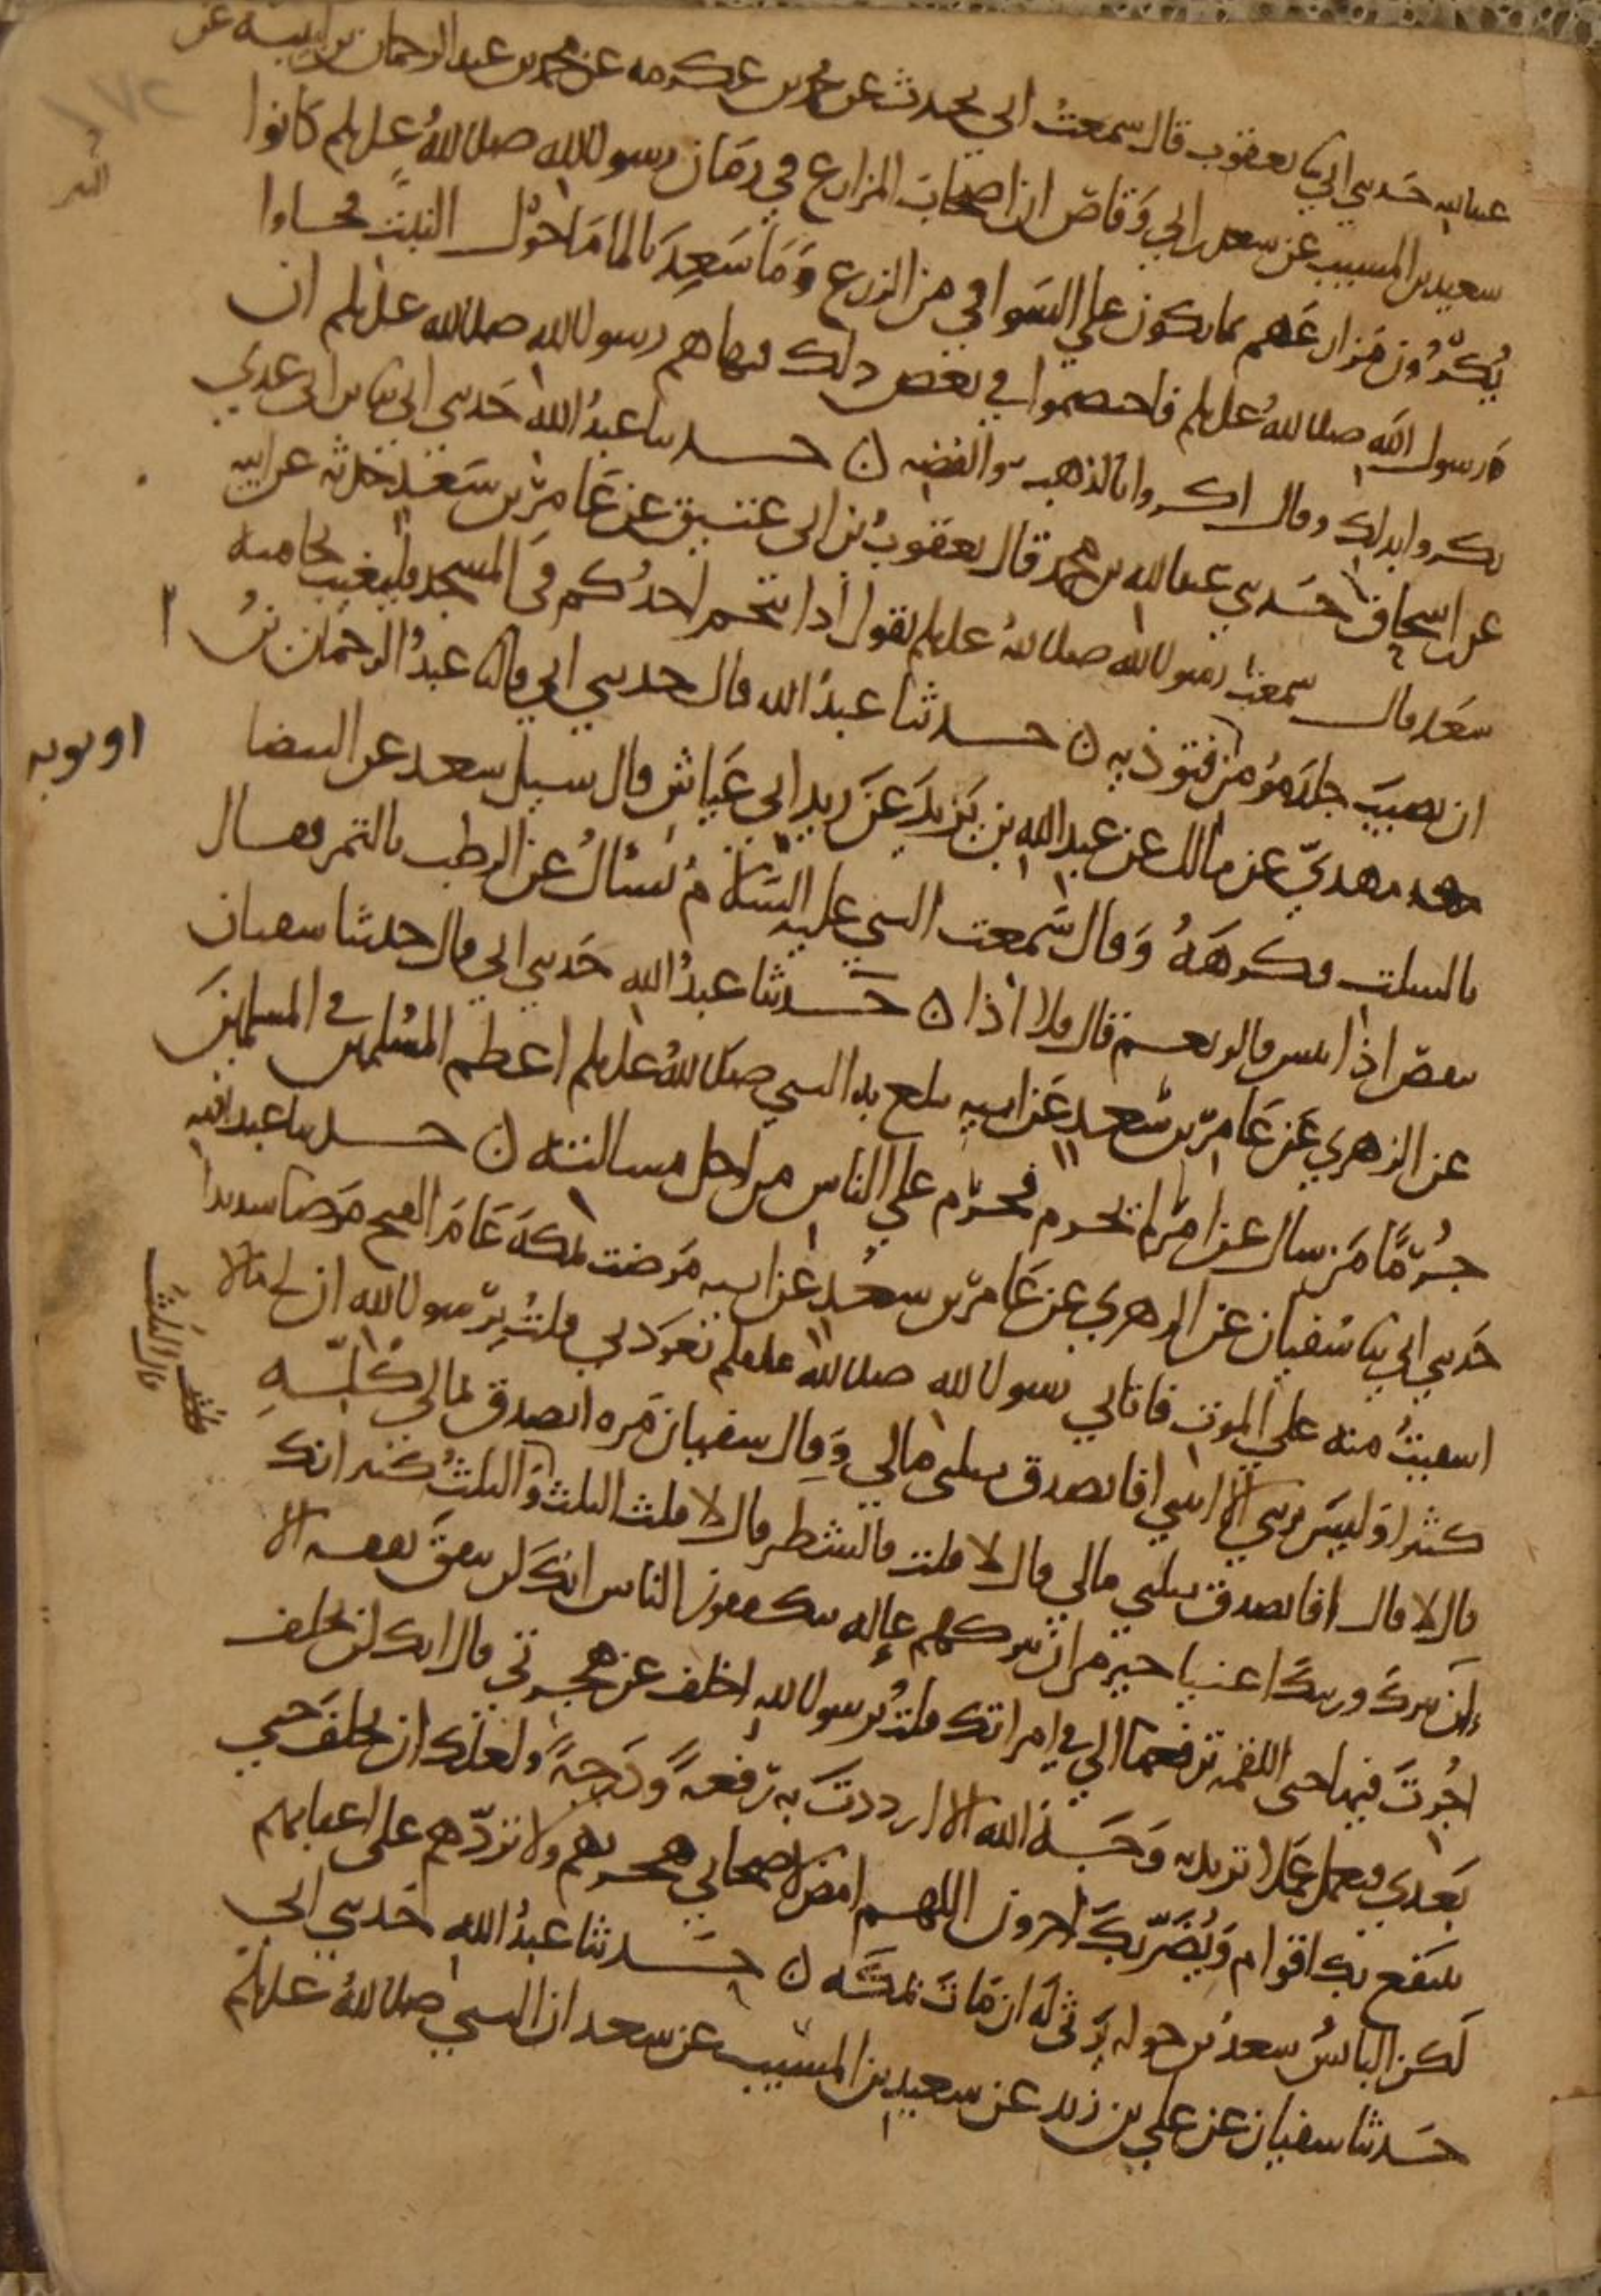 عبد الله حدثني ابي ثنا يعقوب قال سمعت ابي يحدث عن محمد بن عكرمه عن محمد بن عبد الرحمان بن لبيبه عن
سعيد بن المسيب عن سعد بن ابي وقاص ان اصحاب المزارع في زمان رسول الله صلى الله عليه وسلم كانوا
يُكرُون مزارعهم بما يكون على السواقي من الزرع وما سَعِدَ بالما مما حول النبت فجاوا
رسول الله صلى الله عليه وسلم فاختصموا في بعض ذلك فنهاهم رسول الله صلى الله عليه وسلم ان
يكروا بذلك وقال اكروا بالذهب والفضه ن حدثنا عبد الله حدثني ابي ثنا بن ابي عدي
عن ابن اسحاق حدثني عبد الله بن محمد قال يعقوب بن ابي عتيق عن عامر بن سعد حدثه عن ابيه
سعد قال سمعت رسول الله صلى الله عليه وسلم يقول اذا تنخم احدكم في المسجد فليغيب نخامته
ان تصيب جلد مؤمن او ثوبه فتوذيه ن حدثنا عبد الله قال حدثني ابي قال ثنا عبد الرحمان بن
مهدي عن مالك عن عبد الله بن يزيد عن زيد ابي عياش قال سيل سعد عن البيضا
بالسلت فكرهه وقال سمعت النبي عليه السلام يُسئال عن الرطب بالتمر فقال
ينقص اذا يبس قالو نعم قال فلا اذا ن حدثنا عبد الله حدثني ابي قال حدثنا سفيان
عن الزهري عن عامر بن سعد عن ابيه يبلغ به النبي صلى الله عليه وسلم اعظم المسلمين في المسلمين
جُرمًا من سال عن امر لم يحرم فحرم على الناس من اجل مسالته ن حدثنا عبد الله
حدثني ابي ثنا سفيان عن الزهري عن عامر بن سعد عن ابيه مرضت بمكة عام الفتح مرضا شديدا
اشفيتُ منه على الموت فاتاني رسول الله صلى الله عليه وسلم يعودني قلتُ يرسول الله ان لي مالا
كثيرا وليس يرثني الا ابنتي افاتصدق بثلثي مالي وقال سفيان مره اتصدق بمالي كُلِّهِ
قال لا قال افاتصدق بثلثي مالي قال لا قلت فالشطر قال لا قلت الثلث قال الثلث والثلثُ كثير انك
إن تترك ورثتك اغنيا خير من ان تتركهم عاله يتكففون الناس انك لن تنفق نفقه الا
اُجرتَ فيها حتى اللقمه ترفعها الى في امراتك قلتُ يرسول الله اخلف عن هجرتي قال انك لن تخلف
بعدي فتعمل عملا تريد به وجه الله الا ازددت به رفعهً ودرجةً ولعلك ان تخلف حتى
ينتفع بك اقوام ويُضَرّ بك اخرون اللهم امض لاصحابي هجرتهم ولا تردّهم على اعقابهم
لكن البائس سعد بن خوله يرثي له ان مات بمكه ن حدثنا عبد الله حدثني ابي
حدثنا سفيان عن علي بن زيد عن سعيد بن المسيب عن سعد ان النبي صلى الله عليه وسلم